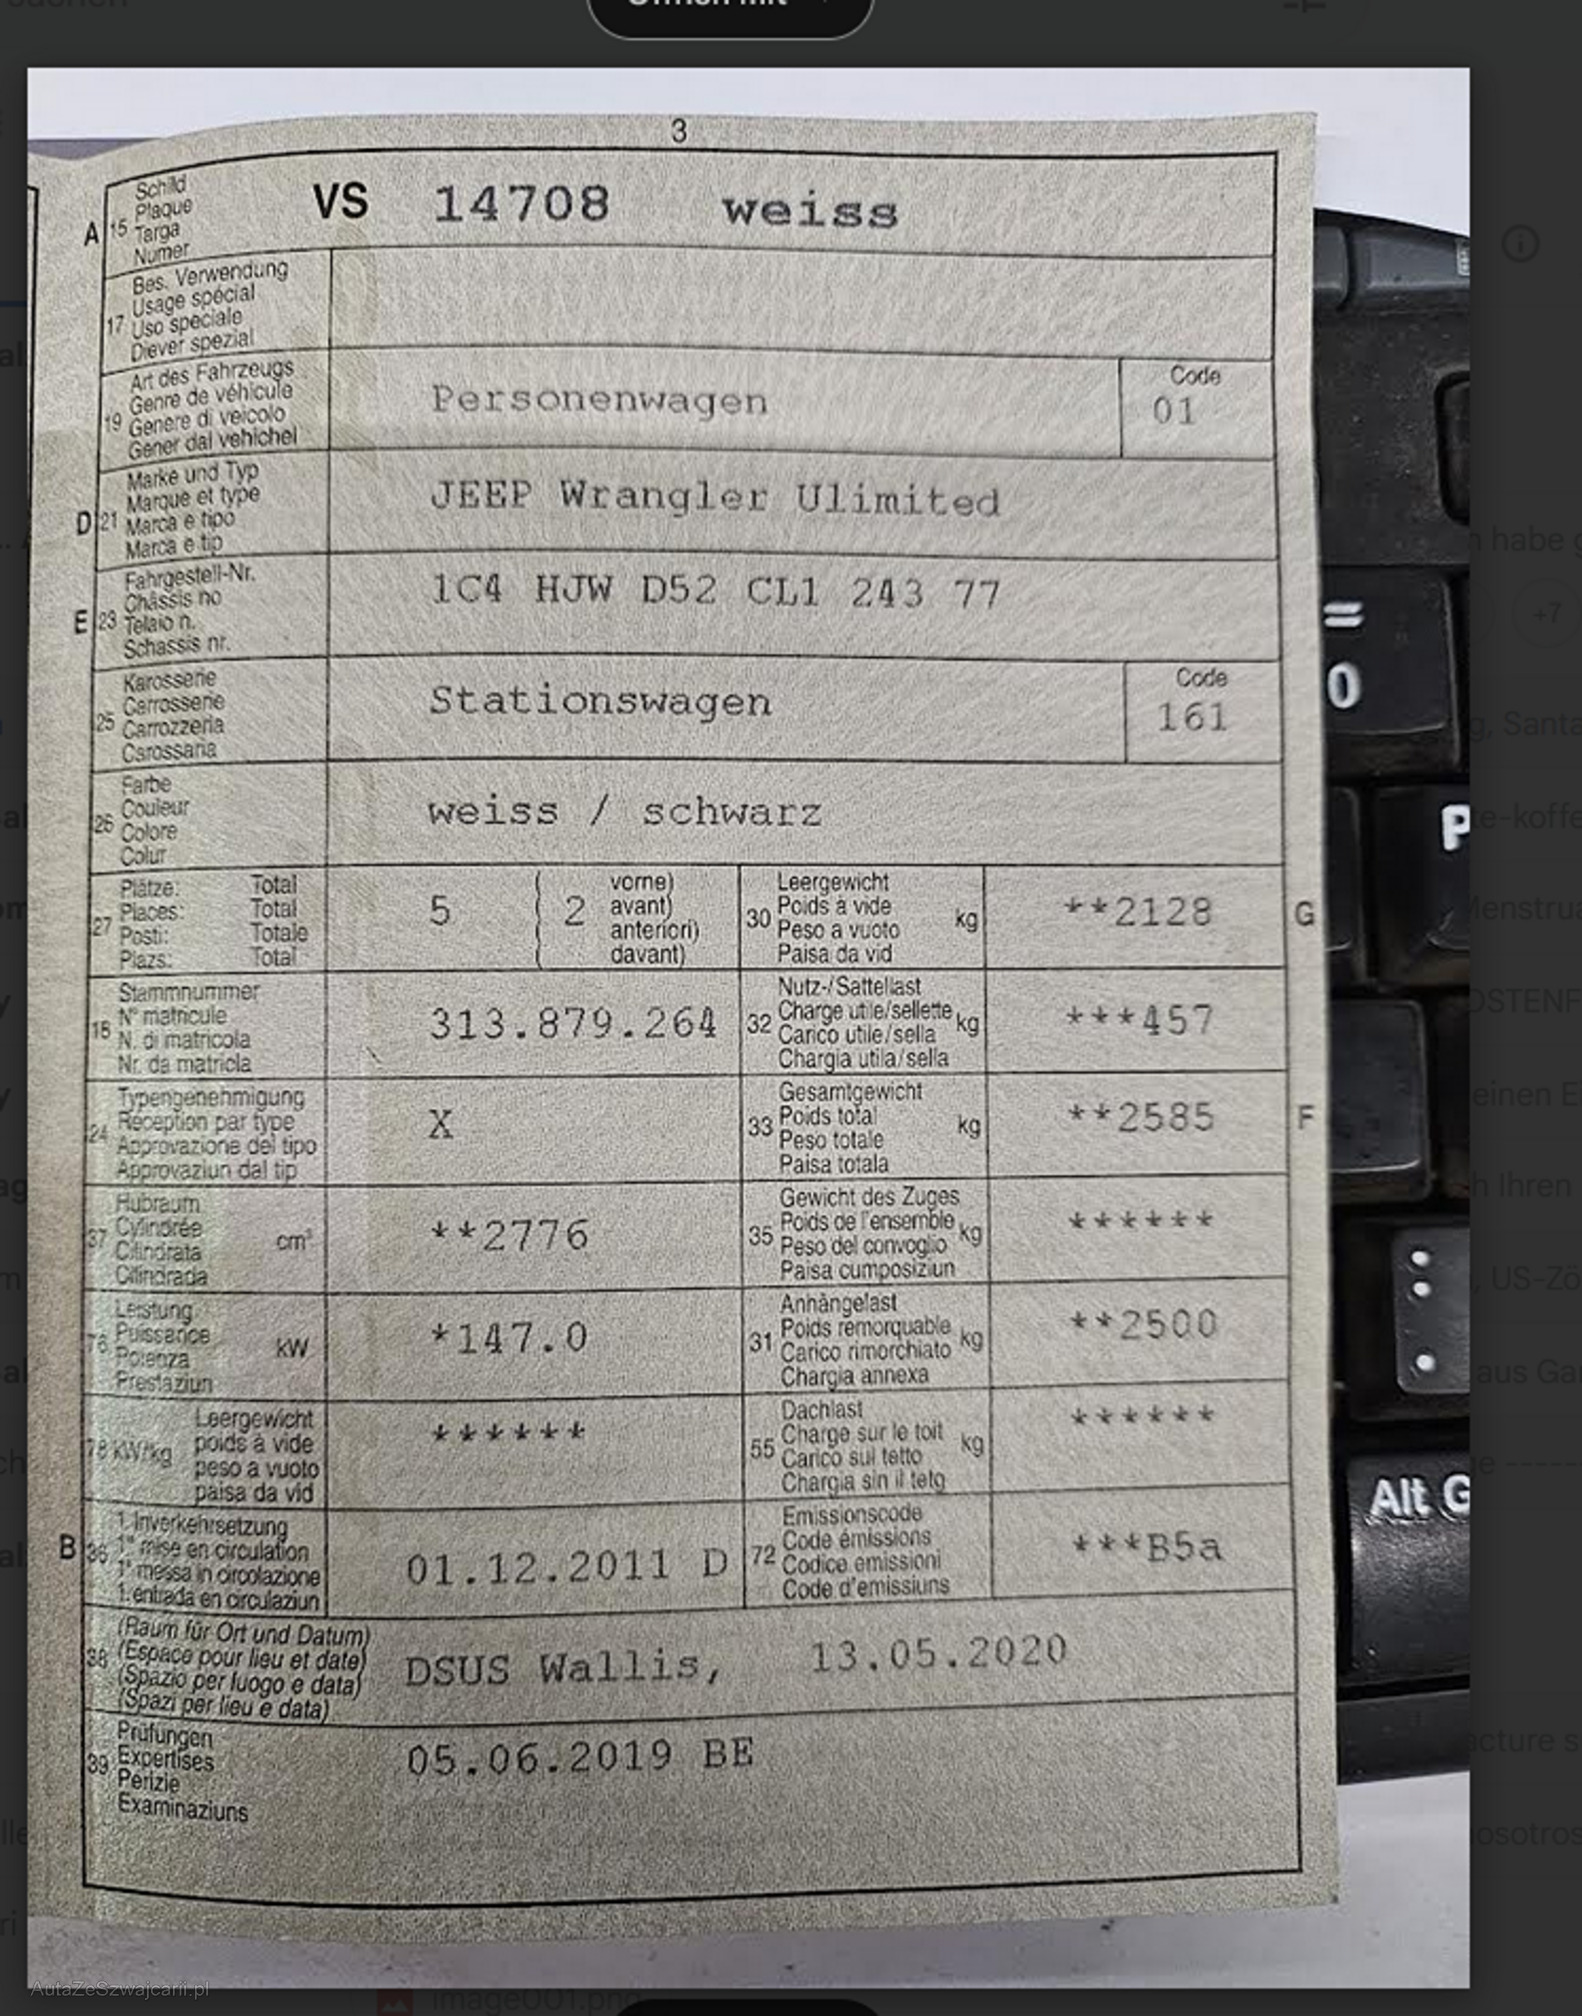 Öffnen mit
3
A 15 Schild
Plaque
Targa
Numer
VS 14708 weiss
17 Bes. Verwendung
Usage spécial
Uso speciale
Diever spezial
19 Art des Fahrzeugs
Genre de véhicule
Genere di veicolo
Gener dal vehichel
Personenwagen
Code
01
D 21 Marke und Typ
Marque et type
Marca e tipo
Marca e tip
JEEP Wrangler Ulimited
E 23 Fahrgestell-Nr.
Châssis no
Telaio n.
Schassis nr.
1C4 HJW D52 CL1 243 77
25 Karosserie
Carrosserie
Carrozzeria
Carossaria
Stationswagen
Code
161
26 Farbe
Couleur
Colore
Colur
weiss / schwarz
27 Plätze: Total
Places: Total
Posti: Totale
Plazs: Total
5 ( 2 vorne)
avant)
anteriori)
davant)
30 Leergewicht
Poids à vide
Peso a vuoto
Paisa da vid
kg
**2128
G
18 Stammnummer
N° matricule
N. di matricola
Nr. da matricla
313.879.264
32 Nutz-/Sattellast
Charge utile/sellette
Carico utile/sella
Chargia utila/sella
kg
***457
24 Typengenehmigung
Réception par type
Approvazione del tipo
Approvaziun dal tip
X
33 Gesamtgewicht
Poids total
Peso totale
Paisa totala
kg
**2585
F
37 Hubraum
Cylindrée
Cilindrata
Cilindrada
cm³
**2776
35 Gewicht des Zuges
Poids de l'ensemble
Peso del convoglio
Paisa cumposiziun
kg
******
76 Leistung
Puissance
Potenza
Prestaziun
kW
*147.0
31 Anhängelast
Poids remorquable
Carico rimorchiato
Chargia annexa
kg
**2500
78 kW/kg Leergewicht
poids à vide
peso a vuoto
paisa da vid
******
55 Dachlast
Charge sur le toit
Carico sul tetto
Chargia sin il tetg
kg
******
B 36 1. Inverkehrsetzung
1re mise en circulation
1a messa in circolazione
1. entrada en circulaziun
01.12.2011 D
72 Emissionscode
Code émissions
Codice emissioni
Code d'emissiuns
***B5a
38 (Raum für Ort und Datum)
(Espace pour lieu et date)
(Spazio per luogo e data)
(Spazi per lieu e data)
DSUS Wallis, 13.05.2020
39 Prüfungen
Expertises
Perizie
Examinaziuns
05.06.2019 BE
=
0
P
Alt G
habe
+7
, Santa
te-koffe
einen
Ihren
, US-Zö
aus Gar
acture
nosotros
AutaZeSzwajcarii.pl
image001.png